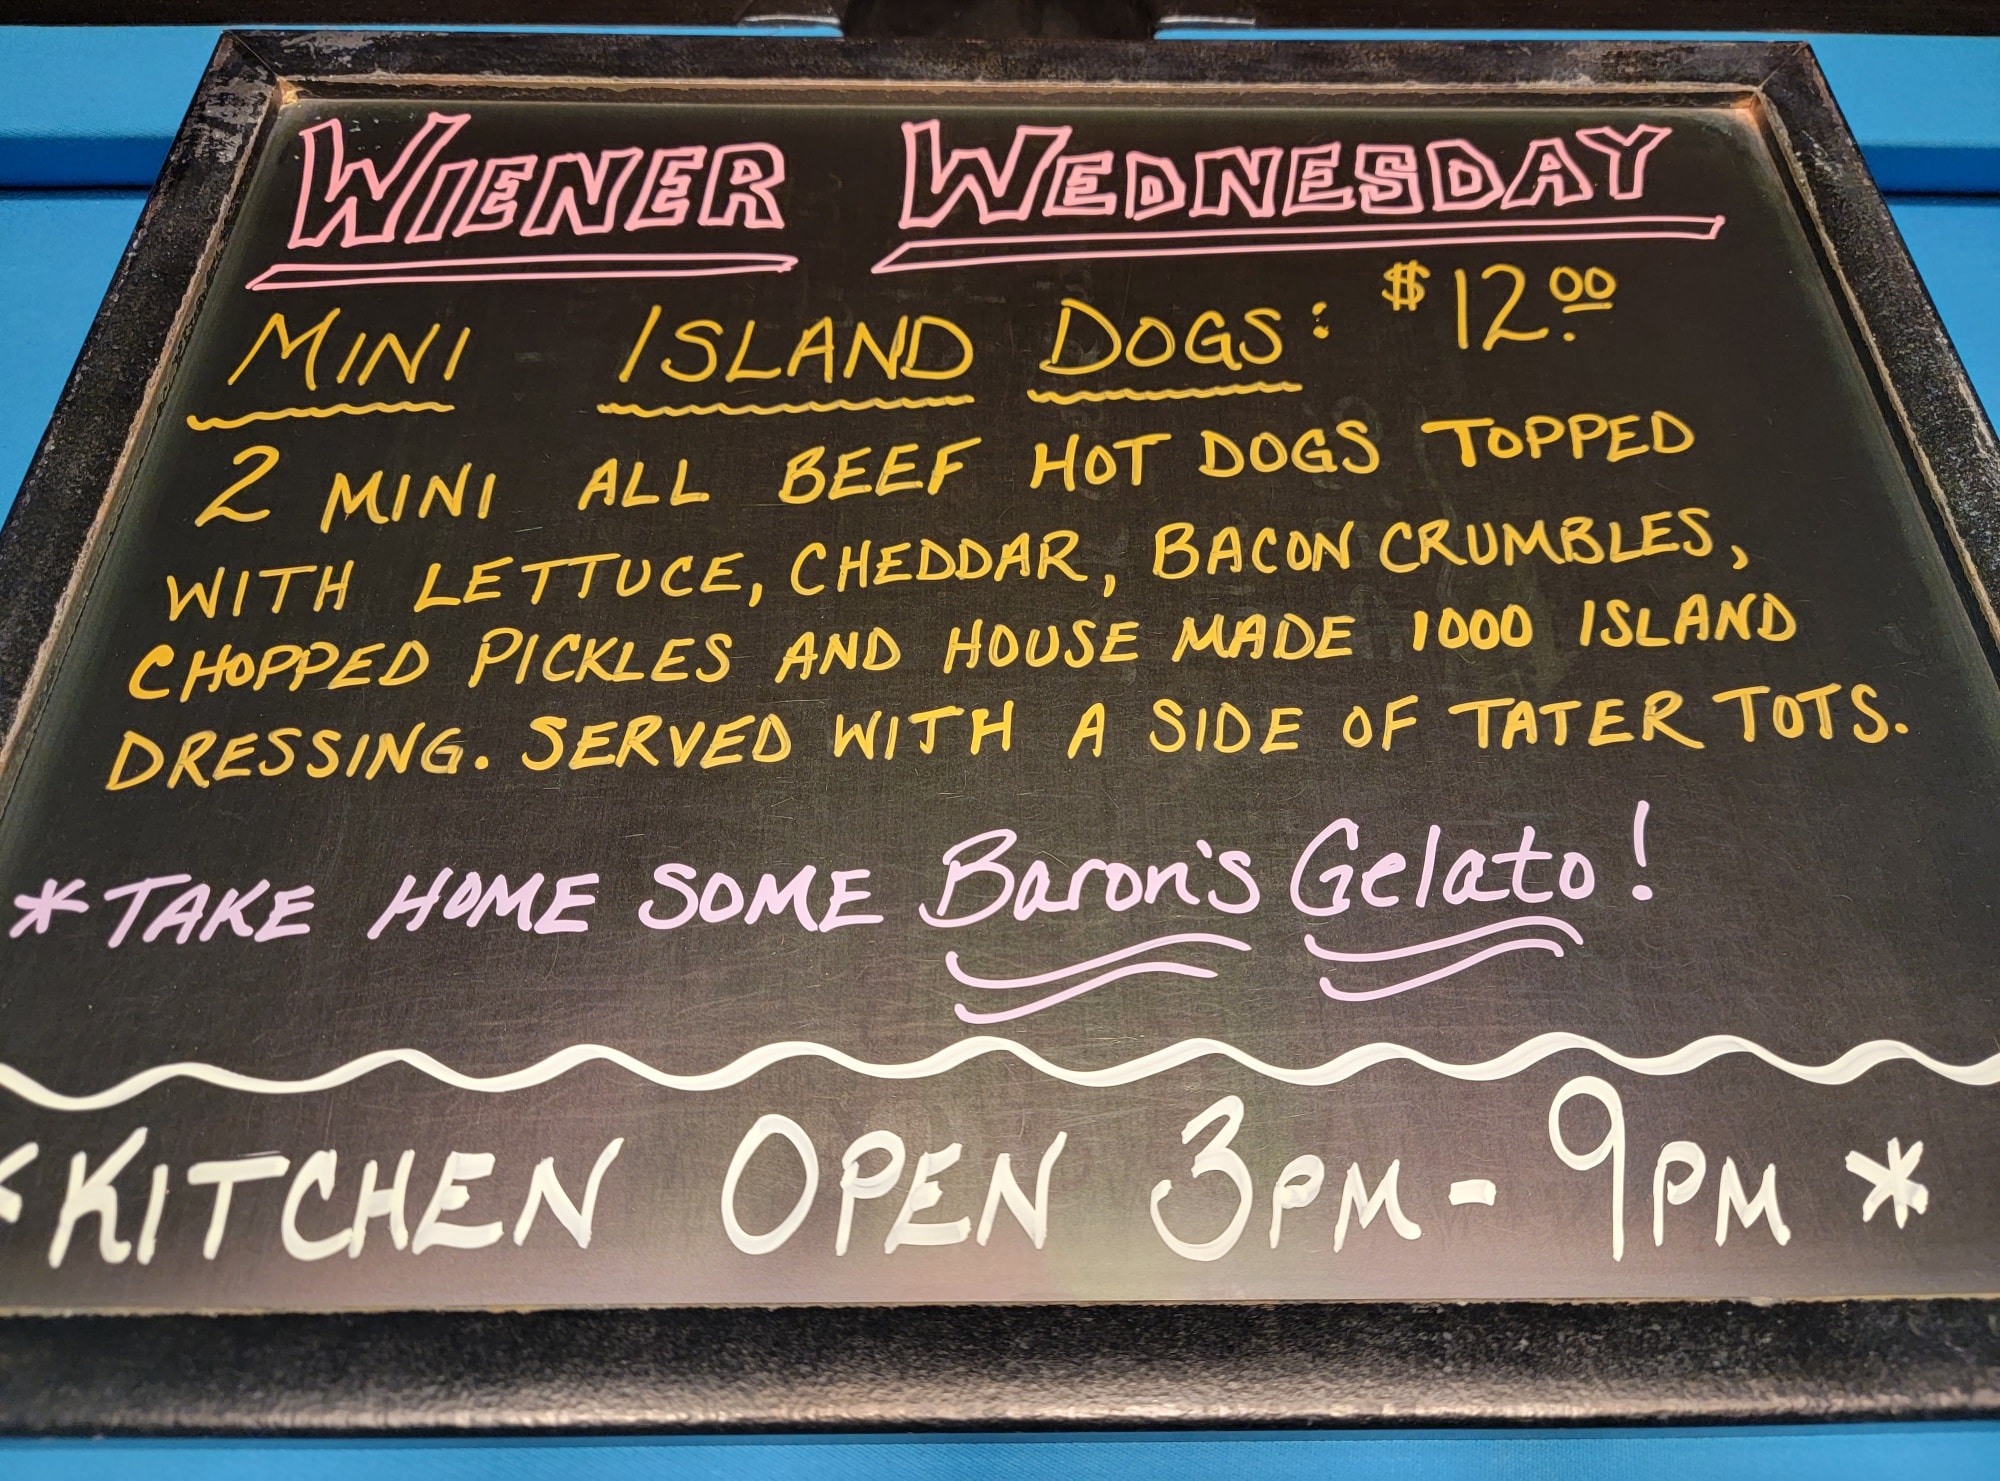 WIENER WEDNESDAY
MINI ISLAND DOGS: $12.00
2 MINI ALL BEEF HOT DOGS TOPPED
WITH LETTUCE, CHEDDAR, BACON CRUMBLES,
CHOPPED PICKLES AND HOUSE MADE 1000 ISLAND
DRESSING. SERVED WITH A SIDE OF TATER TOTS.
*TAKE HOME SOME Baron's Gelato!
*KITCHEN OPEN 3PM-9PM*